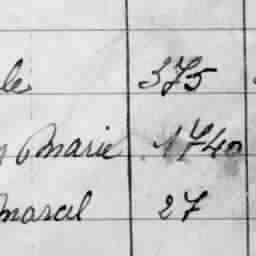 le 375
Marie 1740
Marcel 27